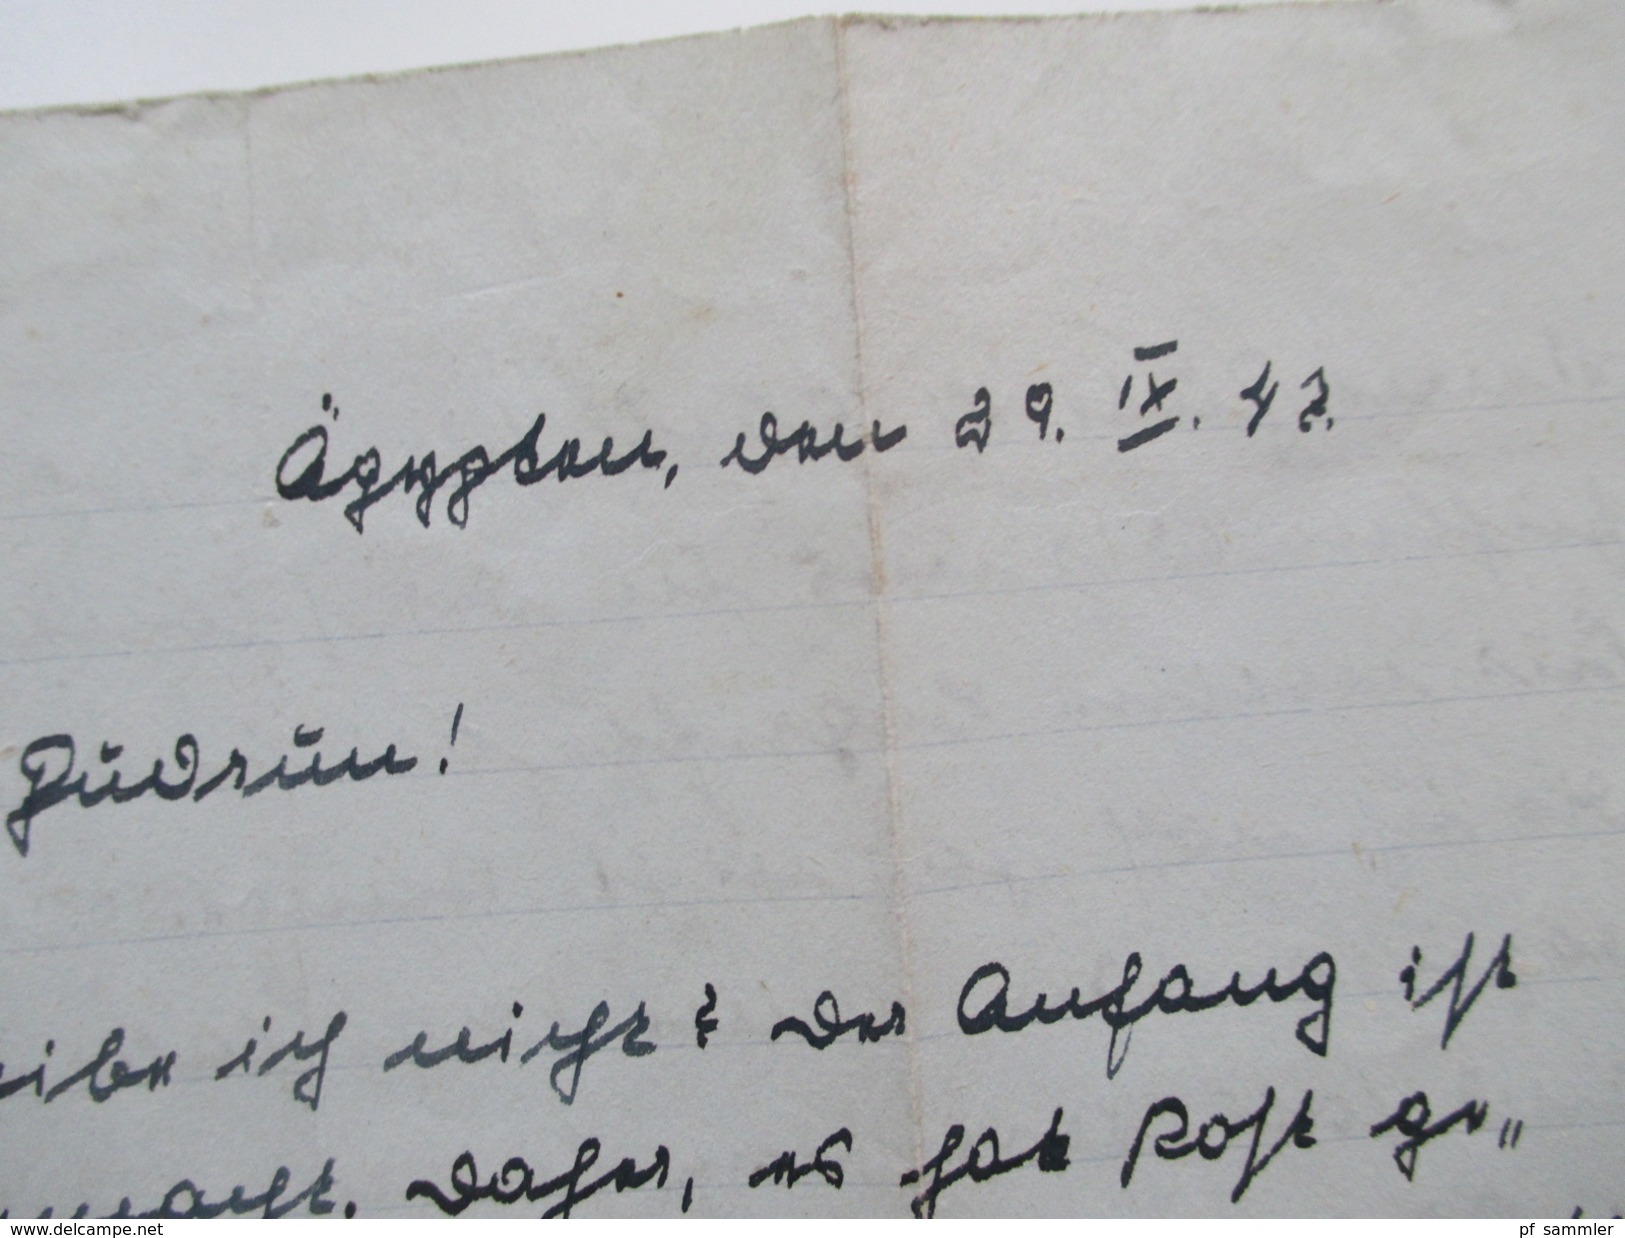 Ägypten, den 29. IX. 42.
Gudrun!
eibe ich nicht? Der Anfang ist
macht. Daher, es hat Post ge„
www.delcampe.net
pf_sammler